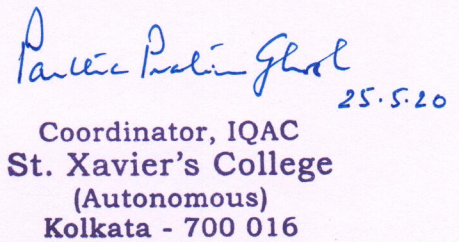 Partha Pratim Ghosh
25.5.20
Coordinator, IQAC
St. Xavier's College
(Autonomous)
Kolkata - 700 016